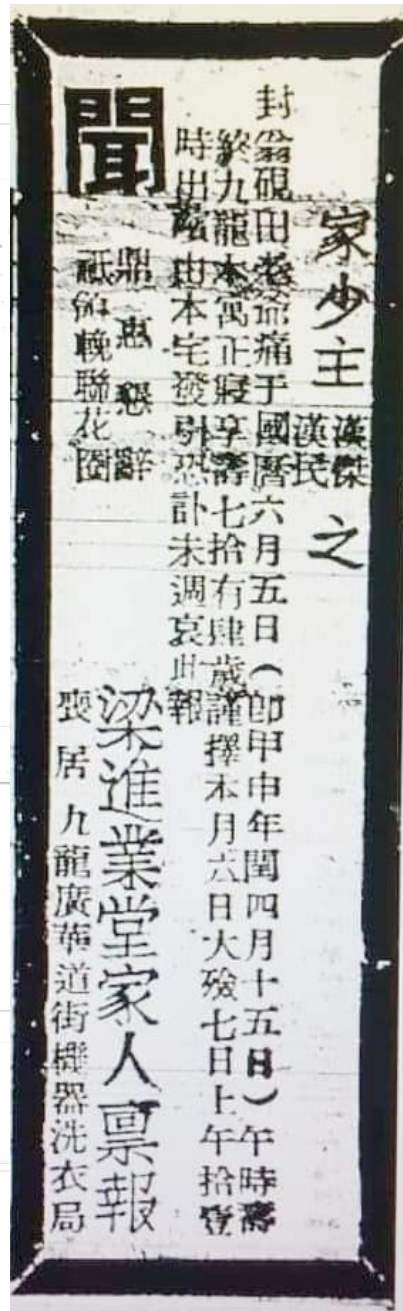 家少主漢傑漢民之
封翁硯田老爺痛于國曆六月五日（即甲申年閏四月十五日）午時壽
終九龍本寓正寢享壽七拾有肆歲謹擇本月六日大殮七日上午拾壹
時出殯由本宅發引恐訃未週哀此報
聞
鼎惠懇辭
祗領輓聯花圈
梁進業堂家人稟報
喪居九龍廣華道街機器洗衣局